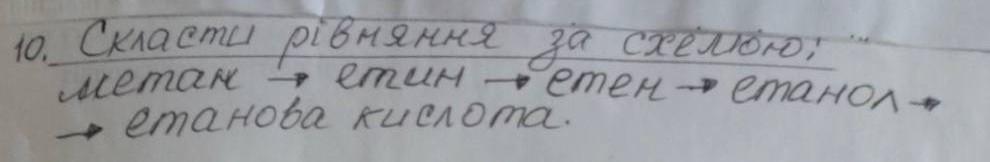 10. Скласти рівняння за схемою:
метан → етин → етен → етанол →
→ етанова кислота.